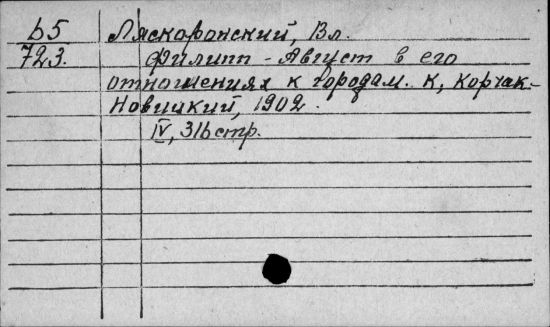 Б5 Ляскоронский, Вл.
723. Филипп-Август в его
отношениях к городам. К, Корчак-
Новицкий, 1902.
IV, 316 стр.